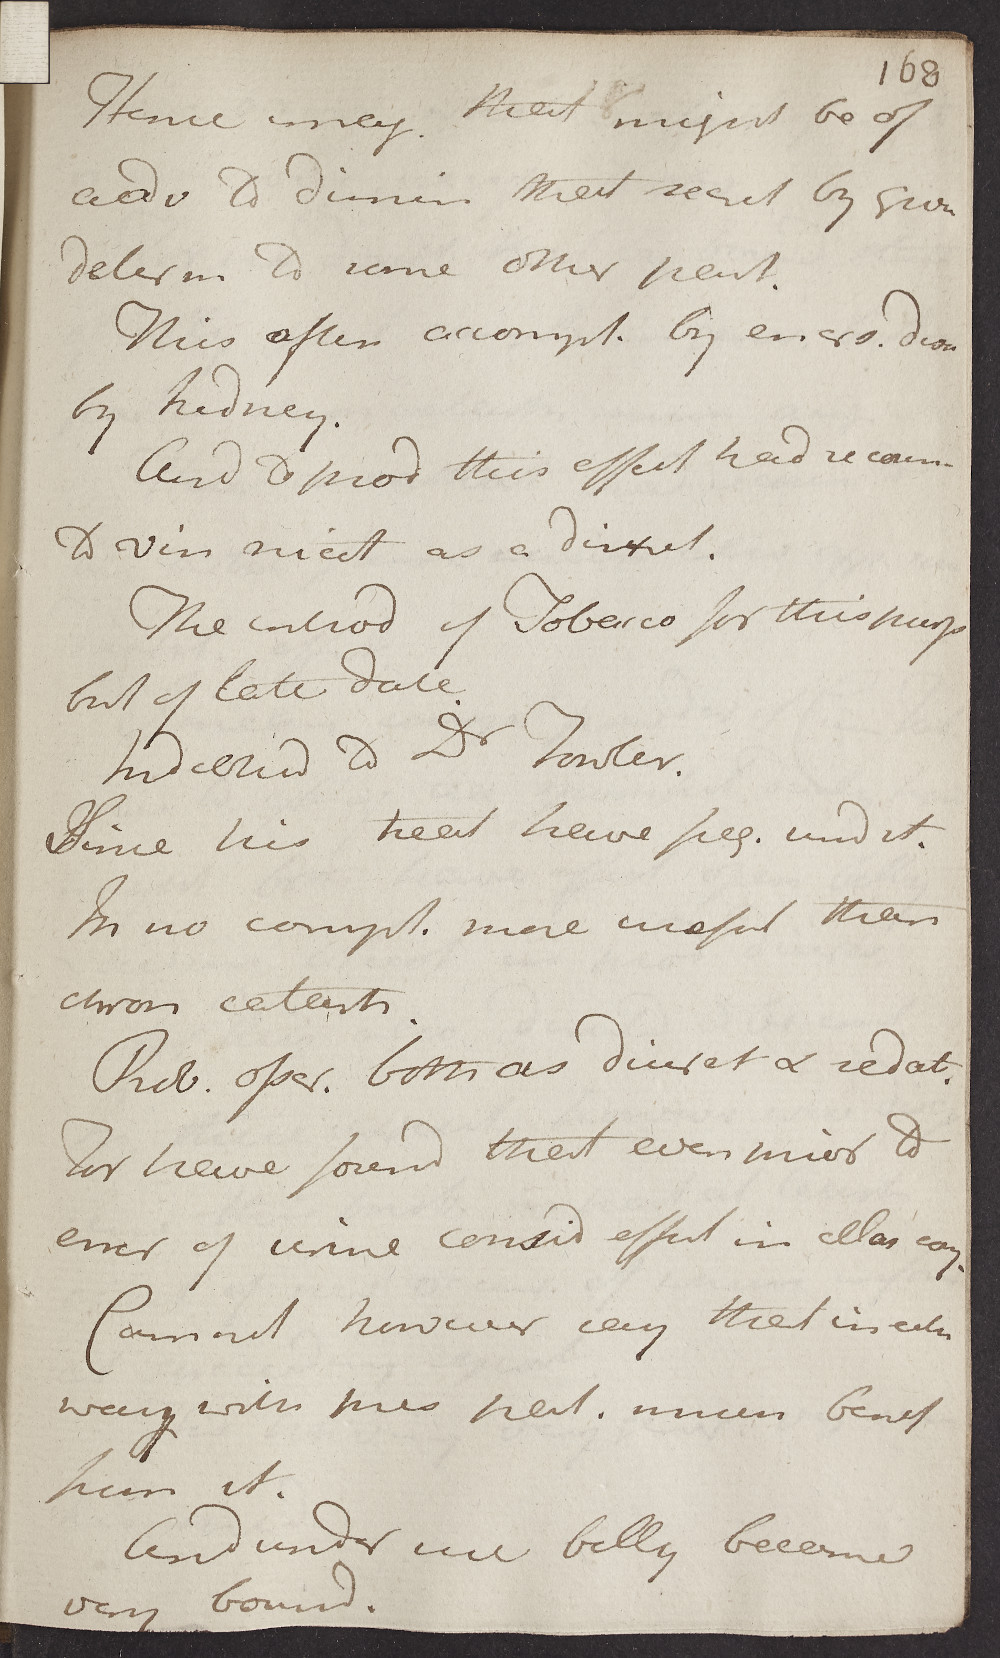 168
Hence imag. that might be of
adv to dimin that secret by given
determ to some other part.
This often accompt. by encrs. d
by kidney.
And to prod this effect had recour
to vin nicot as a diuret.
The introd of Tobacco for this purp
but of late date.
Indebted to Dr Fowler.
Since his treat have freq. und it.
In no compt. more useful than
chron catarrh.
Prob. oper. both as diuret & sedat.
For have found that even prior to
encr of urine consid effect in allay
Cannot however say that in
way with pres pat. much benef
from it.
And under use belly become
very bound.